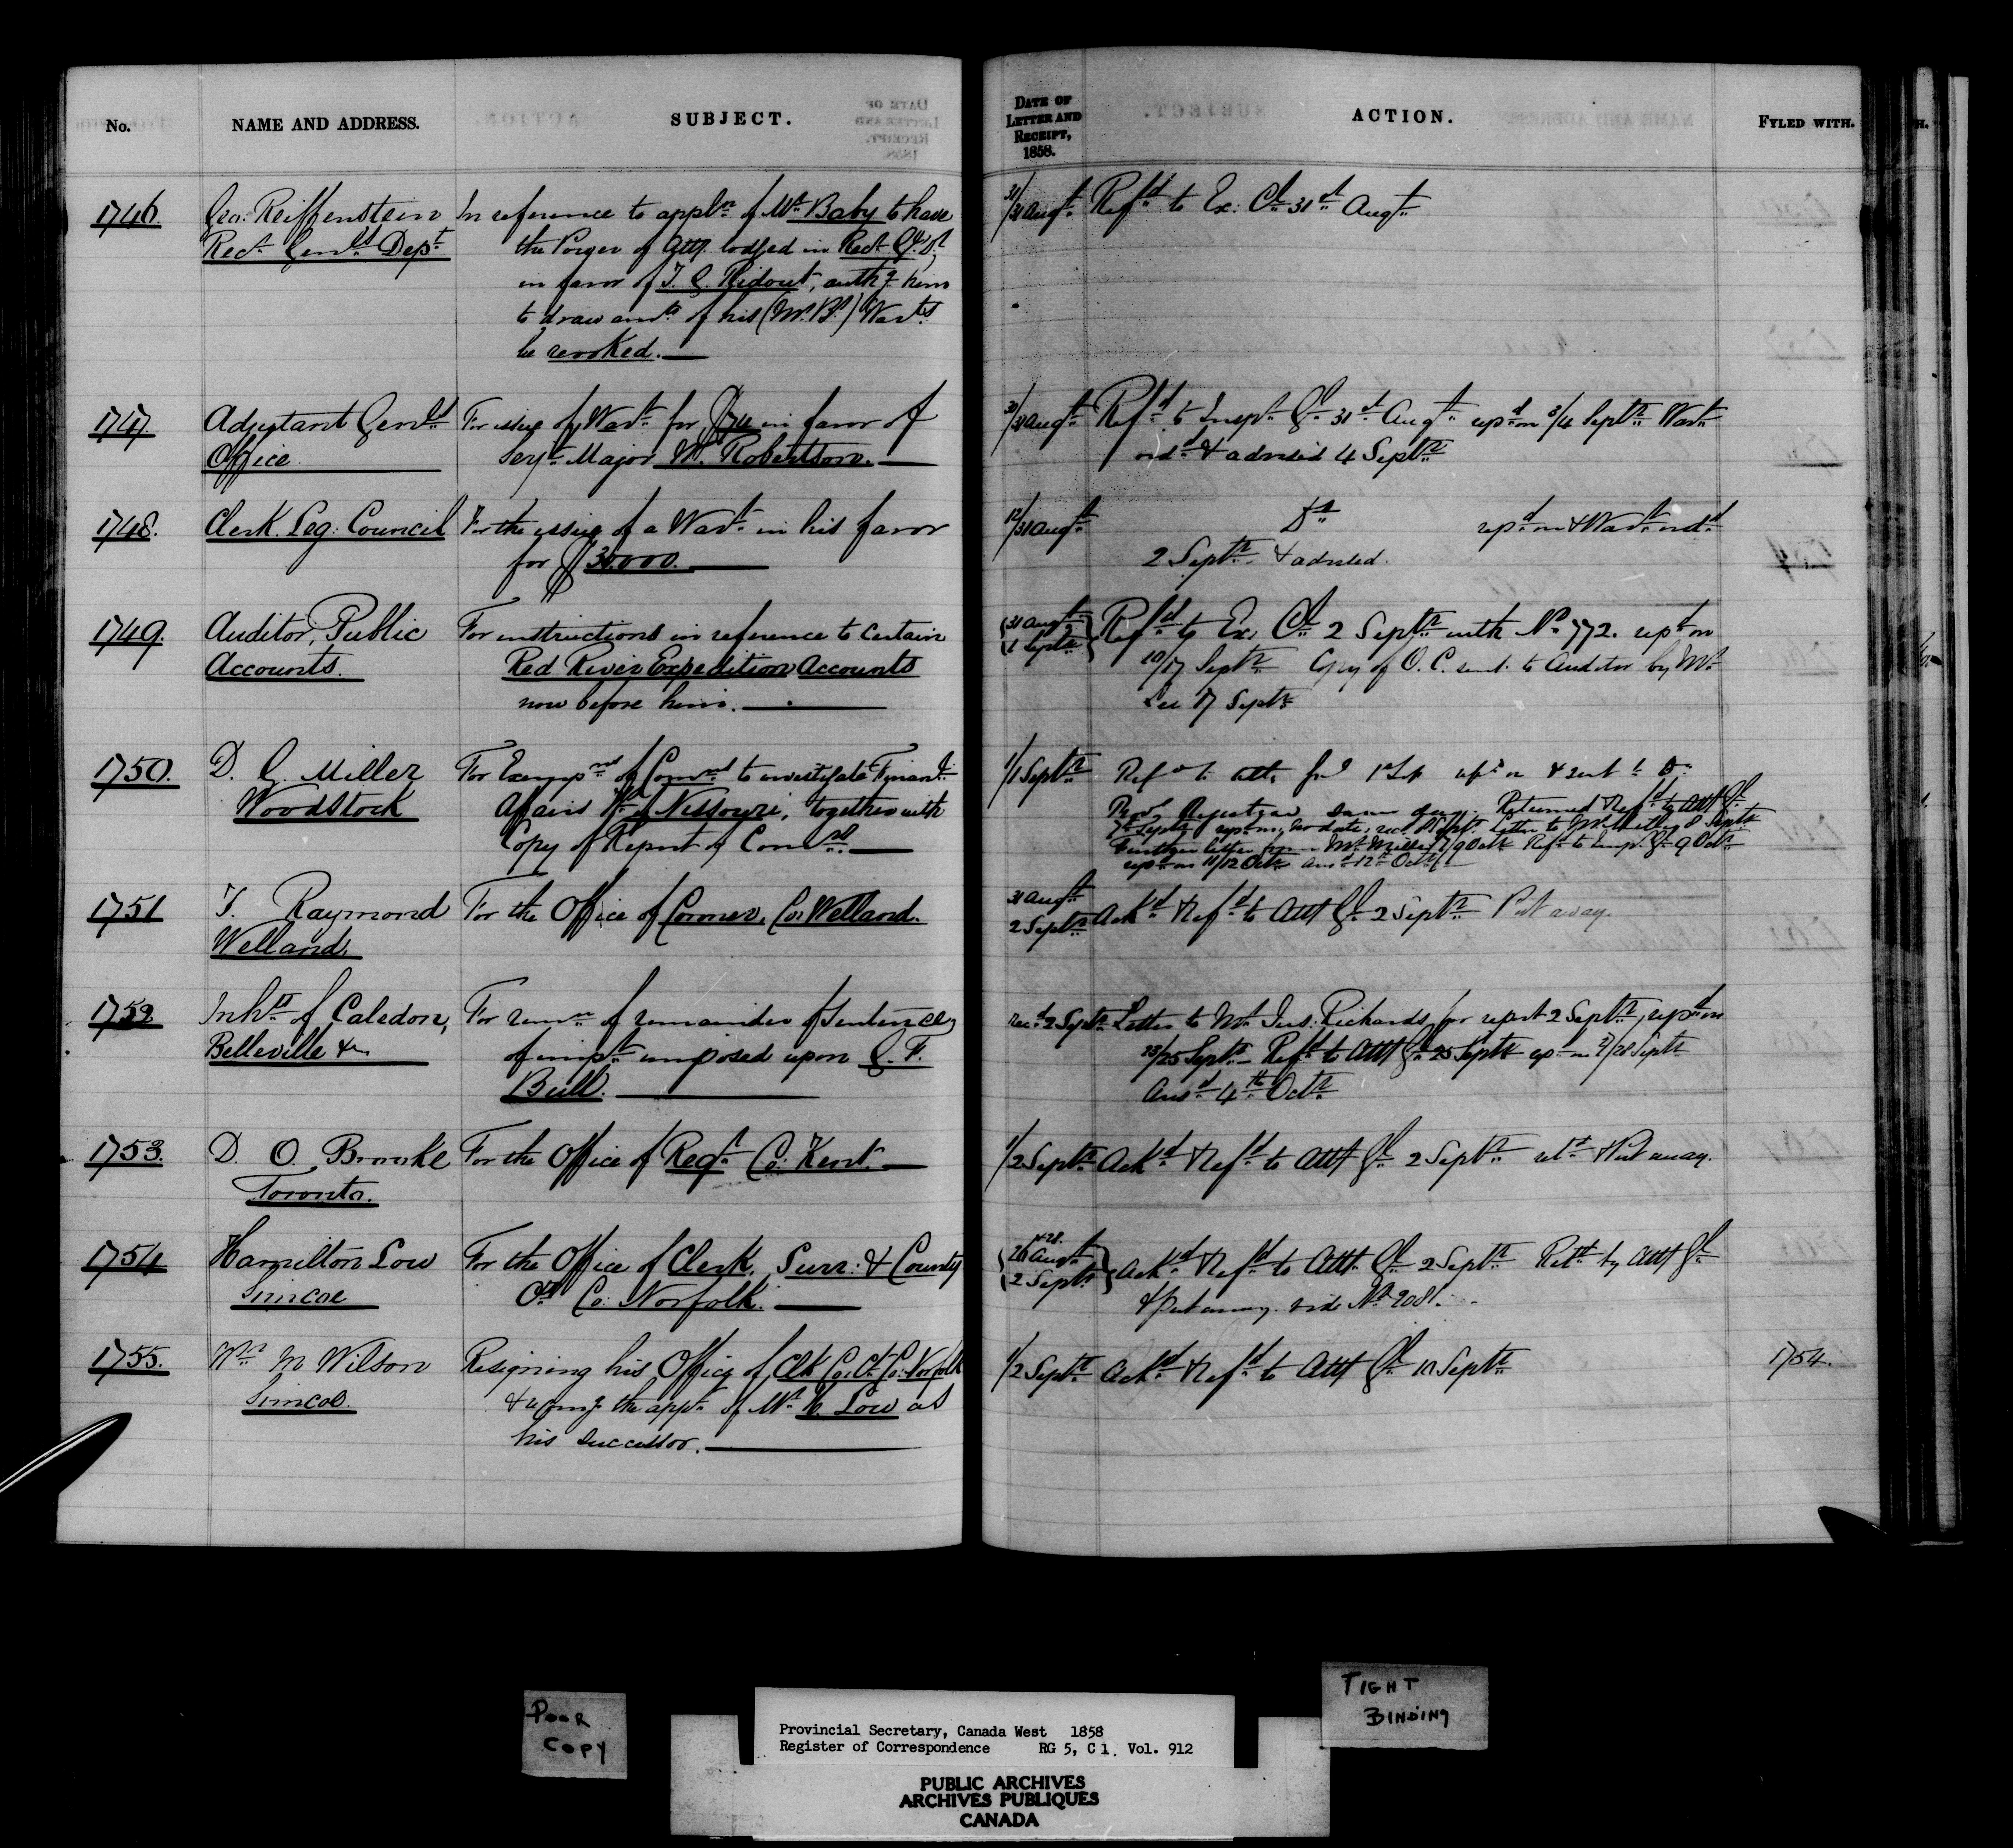 No.
NAME AND ADDRESS.
SUBJECT.
DATE OF
LETTER AND
RECEIPT,
1858.
ACTION.
FYLED WITH.
1746.
Geo: Reiffenstein
Recr. Genls. Dept
In reference to appln. of Mr. Baby to have
the Power of Atty. lodged in Recr. Gl. Dt.
in favor of T. G. Ridout, authg. him
to draw amts. of his (Mr. B's.) Warts.
be revoked.
31/31 Augt.
Refd. to Ex: Cl. 31st. Augt.
1747.
Adjutant Genls
Office.
For issue of Wart. for $74 in favor of
Sergt. Major W. Robertson.
30/31 Augt.
Refd. to Inspr. Gl. 31st. Augt. repd. on 3/4 Septr. Wart.
ordd. & advised 4 Septr.
1748.
Clerk. Leg: Council
For the issue of a Wart. in his favor
for $30,000.
12/31 Augt.
Do. repd. on & Wart. ordd
2 Septr. & advised.
1749.
Auditor, Public
Accounts.
For instructions in reference to certain
Red River Expedition Accounts
now before him.
31 Augt.
1 Septr.
Refd. to Ex. Cl. 2 Septr. with No. 772. repd. on
10/17 Septr. Copy of O. C. sent. to Auditor by Mr.
Lee 17 Septr.
1750.
D. G. Miller
Woodstock
For Exempns. of Comns. to investigate Finanl.
Affairs W. Nissouri, together with
Copy of Report of Comns.
1/1 Septr.
Refd. to Atty Genl 1 Sep repd on & sent to Do.
Provl. Registrar same day. Returned & Refd. to Atty Gl.
7 Septr. repd. on, no date, recd. 8 Sept. Letter to Mr. 8 Septr.
Further letter from Mr. Miller 7/9 Octr. Refd. to Insp. Gl. 9 Octr.
repd. on 11/12 Octr. Ansd. 12th. Octr.
1751
T. Raymond
Welland.
For the Office of Coroner, Co: Welland.
31 Augt.
2 Septr.
Ackd. & Refd. to Atty Gl. 2 Septr. Put away.
1752
Inhts. of Caledon,
Belleville &c
For remn. of remainder of Sentence
of impt. imposed upon G. F.
Bull.
recd. 2 Septr.
Letter to Mr. Jus: Richards for report 2 Septr, repd. on
23/25 Septr. Refd. to Atty Gl. 25 Septr. repd. on 27/28 Septr
Ansd. 4th. Octr.
1753.
D. O. Brooke
Toronto.
For the Office of Regr. Co: Kent.
1/2 Septr.
Ackd. & Refd. to Atty Gl. 2 Septr. retd. & Put away.
1754
Hamilton Low
Simcoe
For the Office of Clerk, Surr: & County
Ct. Co: Norfolk.
& 28.
26 Augt.
2 Septr.
Ackd. & Refd. to Atty. Gl. 2 Septr. Retd. by Atty Gl.
& put away. vide No. 2081.
1755.
Wm. M Wilson
Simcoe.
Resigning his Office of Clk Co: Ct. Co: Norfolk
& recomg. the appt. of Mr. H. Low as
his successor.
1/2 Septr.
Ackd. & Refd. to Atty Gl. 10 Septr.
1754.
POOR
COPY
TIGHT
BINDING
Provincial Secretary, Canada West 1858
Register of Correspondence RG 5, C 1, Vol. 912
PUBLIC ARCHIVES
ARCHIVES PUBLIQUES
CANADA